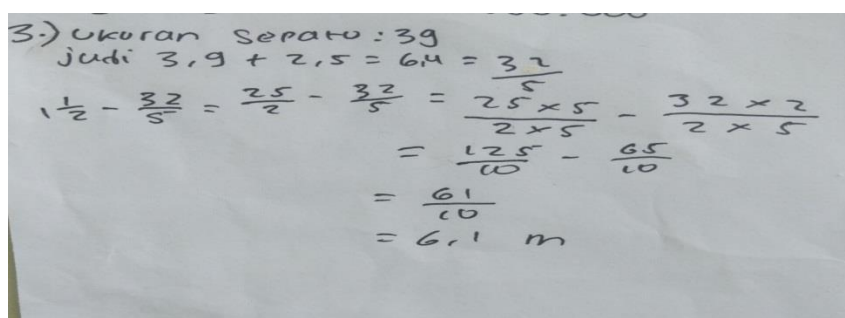 3.) Ukuran Sepatu : 39
judi 3,9 + 2,5 = 6,4 = 32/5
1 1/2 - 32/5 = 25/2 - 32/5 = 25 x 5 / 2 x 5 - 32 x 2 / 2 x 5
= 125/10 - 65/10
= 61/10
= 6,1 m